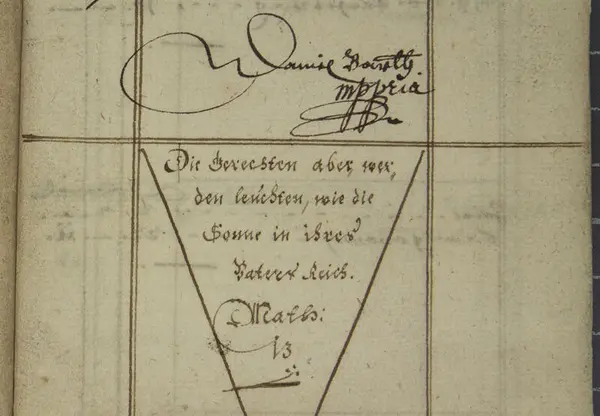 Daniel Barth
mppria
Die Gerechten aber wer,
den leuchten, wie die
Sonne in ihres
Vaters Reich.
Math:
13